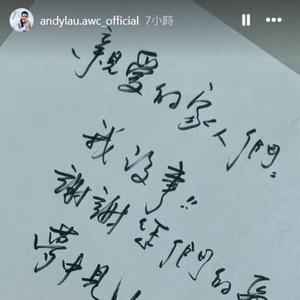 andylau.awc_official 7小時
親愛的家人們:
我沒事!!
謝謝你們的愛
夢中見